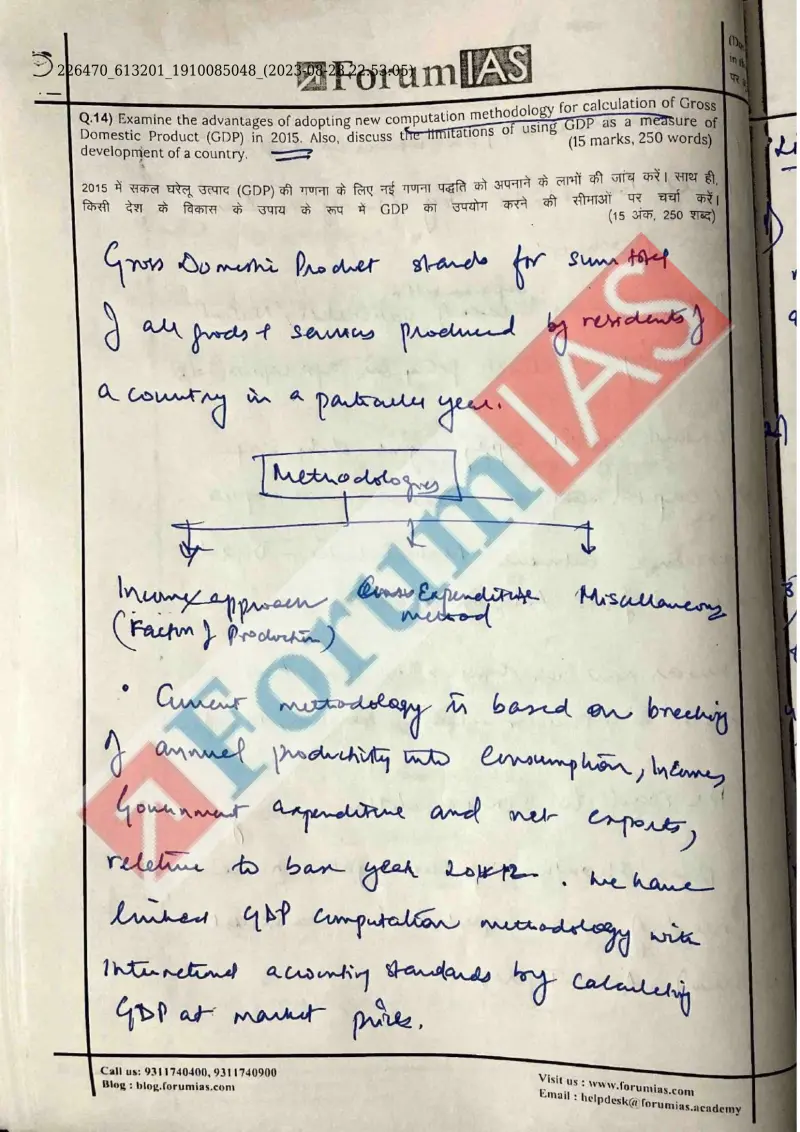 226470_613201_1910085048_(2023-08-28 22:53:05)
ForumIAS
Q.14) Examine the advantages of adopting new computation methodology for calculation of Gross
Domestic Product (GDP) in 2015. Also, discuss the limitations of using GDP as a measure of
development of a country. (15 marks, 250 words)
2015 में सकल घरेलू उत्पाद (GDP) की गणना के लिए नई गणना पद्धति को अपनाने के लाभों की जांच करें। साथ ही,
किसी देश के विकास के उपाय के रूप में GDP का उपयोग करने की सीमाओं पर चर्चा करें।
(15 अंक, 250 शब्द)
Gross Domestic Product stands for sum total
of all goods & services produced by residents of
a country in a particular year.
Methodologies
Income approach Expenditure Miscellaneous
(Factor of Production) method
• Current methodology is based on breaking
of annual productivity into Consumption, Incomes
Government expenditure and net exports,
relative to base year 2011-12. We have
linked GDP computation methodology with
International accounting standards by calculating
GDP at market prices.
ForumIAS
Call us: 9311740400, 9311740900
Blog : blog.forumias.com
Visit us : www.forumias.com
Email : helpdesk@forumias.academy